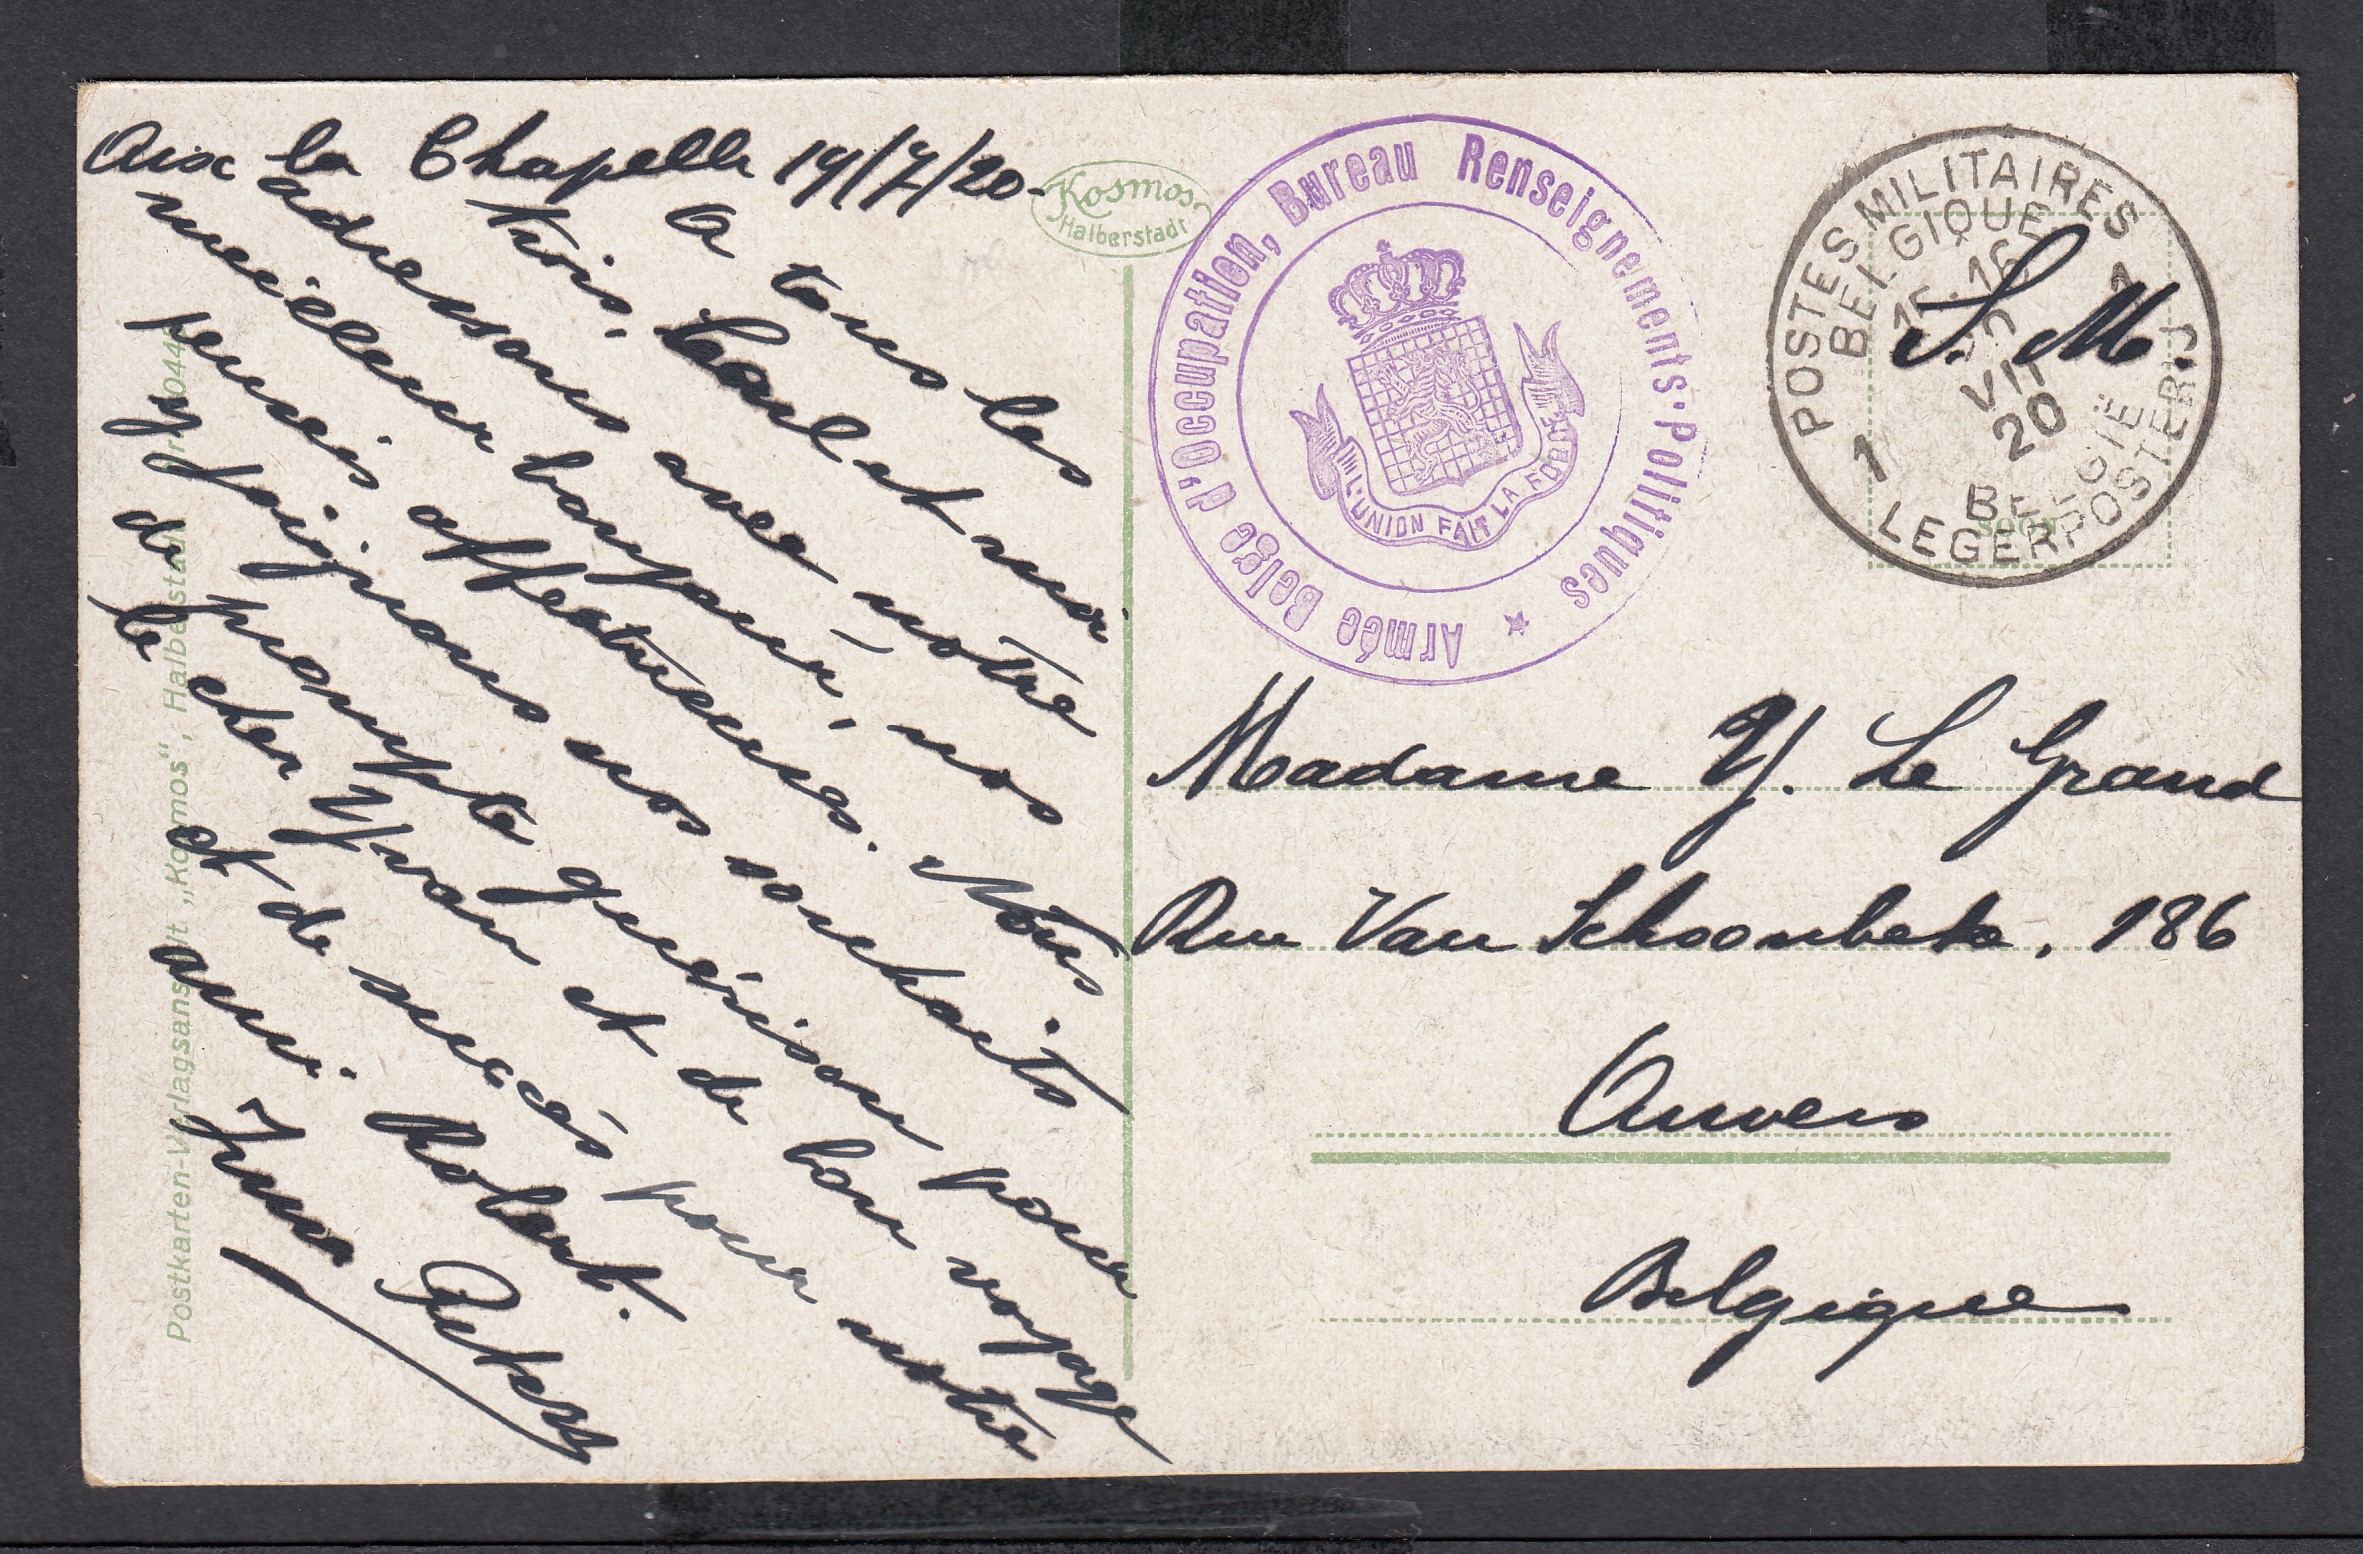 Aix la Chapelle 19/7/20
A tous les
trois, Carl et moi
adressons avec notre
meilleur bonjour, nos
pensées affectueuses. Nous
y joignons nos souhaits
de prompte guérison pour
le cher Yvan et de bon voyage
et de succès pour notre
ami Robert.
Peters
Kosmos
Halberstadt
Postkarten-Verlagsanstalt „Kosmos“, Halberstadt
Armée Belge d'Occupation, Bureau Renseignements-Politiques
L'UNION FAIT LA FORCE
POSTES MILITAIRES
BELGIQUE
15-16
VII
20
1 1
BELGIË
LEGERPOSTERIJ
S. M.
Madame Y. Le Grand
Rue Van Schoonbeke, 186
Anvers
Belgique